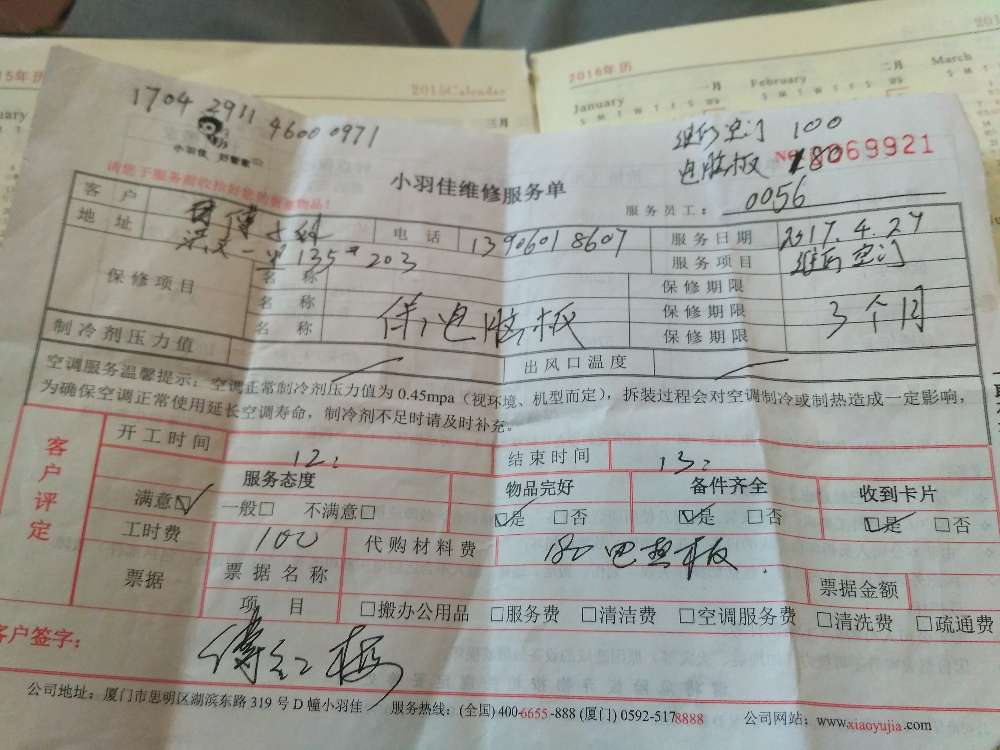 2015年历
2015Calendar
2016年历
一月
二月
January
February
March
S M T W T F S
三月
1704 2911 4600 0971
小羽佳 好管家
100
电脑板 180
请您于服务前收拾好您的贵重物品!
小羽佳维修服务单
No. 8069921
服务员工: 0056
客户
电话 13906018607
服务日期 2017.4.27
地址 一里135# 203
服务项目
保修项目
名称
保修期限
名称 保电脑板
保修期限 3个月
名称
保修期限
制冷剂压力值
出风口温度
空调服务温馨提示:空调正常制冷剂压力值为0.45mpa(视环境、机型而定),拆装过程会对空调制冷或制热造成一定影响,
为确保空调正常使用延长空调寿命,制冷剂不足时请及时补充。
客户评定
开工时间 12:
结束时间 13:
服务态度
物品完好
备件齐全
收到卡片
满意☑ 一般□ 不满意□
☑是 □否
☑是 □否
☑是 □否
工时费 100
代购材料费 180 电脑板
票据
票据名称
票据金额
项目
□搬办公用品 □服务费 □清洁费 □空调服务费 □清洗费 □疏通费
客户签字:
公司地址:厦门市思明区湖滨东路319号D幢小羽佳 服务热线:(全国)400-6655-888 (厦门)0592-5178888 公司网站:www.xiaoyujia.com